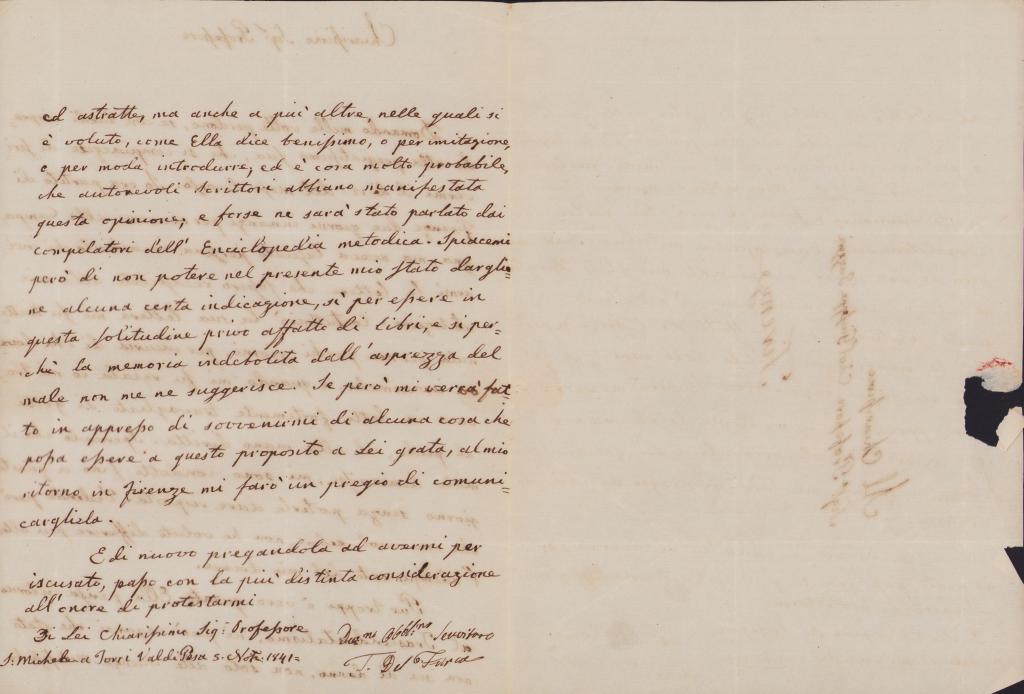 ed astratte, ma anche a più altre, nelle quali si
è voluto, come Ella dice benissimo, o per imitazione,
o per moda introdurre, ed è cosa molto probabile,
che autorevoli scrittori abbiano manifestata
questa opinione; e forse ne sarà stato parlato dai
compilatori dell' Enciclopedia metodica. Spiacemi
però di non potere nel presente mio stato darglie=
ne alcuna certa indicazione, sì per essere in
questa solitudine privo affatto di libri, e sì per=
chè la memoria indebolita dall' asprezza del
male non me ne suggerisce. Se però mi verrà fat=
to in appresso di sovvenirmi di alcuna cosa che
possa essere a questo proposito a Lei grata, al mio
ritorno in firenze mi farò un pregio di comuni=
cargliela.
E di nuovo pregandola ad avermi per
iscusato, passo con la più distinta considerazione
all' onore di protestarmi
Di Lei Chiarissimo Sig. Professore
Servitore
S. Michele a Torri Val di Pesa 5. Nov. 1841=
T. Del Furia